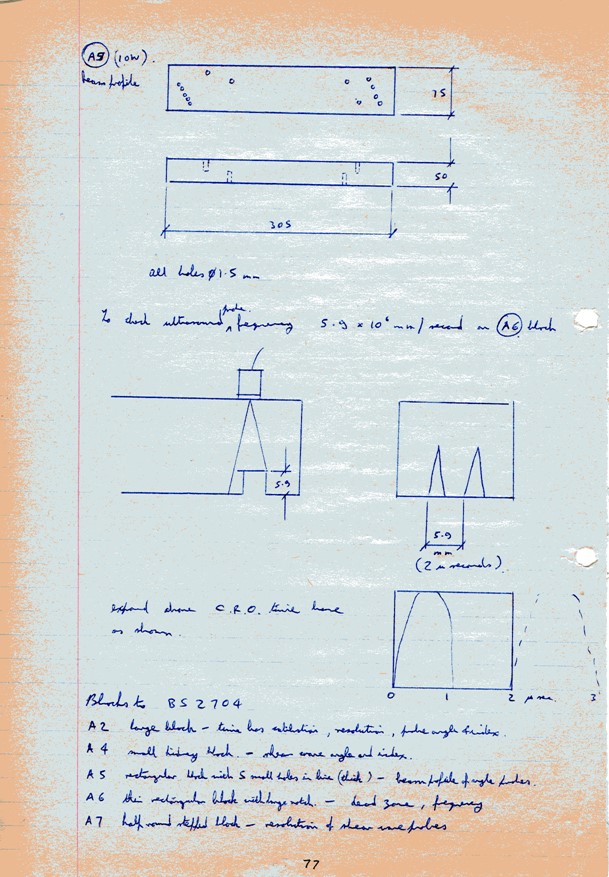 A5 (IOW).
beam profile
75
50
305
all holes ϕ 1.5 mm
probe
To check ultrasound ^ frequency 5.9 x 10⁶ mm/second on A6 block
5.9
5.9
mm
(2 μ seconds)
expand above C.R.O. time base
as shown.
0 1 2 μ sec. 3
Blocks to BS 2704
A2 large block - time base calibration, resolution, probe angle & index.
A4 small kidney block. - shear wave angle and index.
A5 rectangular block with 5 small holes in line (thick) - beam profile of angle probes.
A6 thin rectangular block with large notch. - dead zone, frequency
A7 half round stepped block - resolution of shear wave probes
77